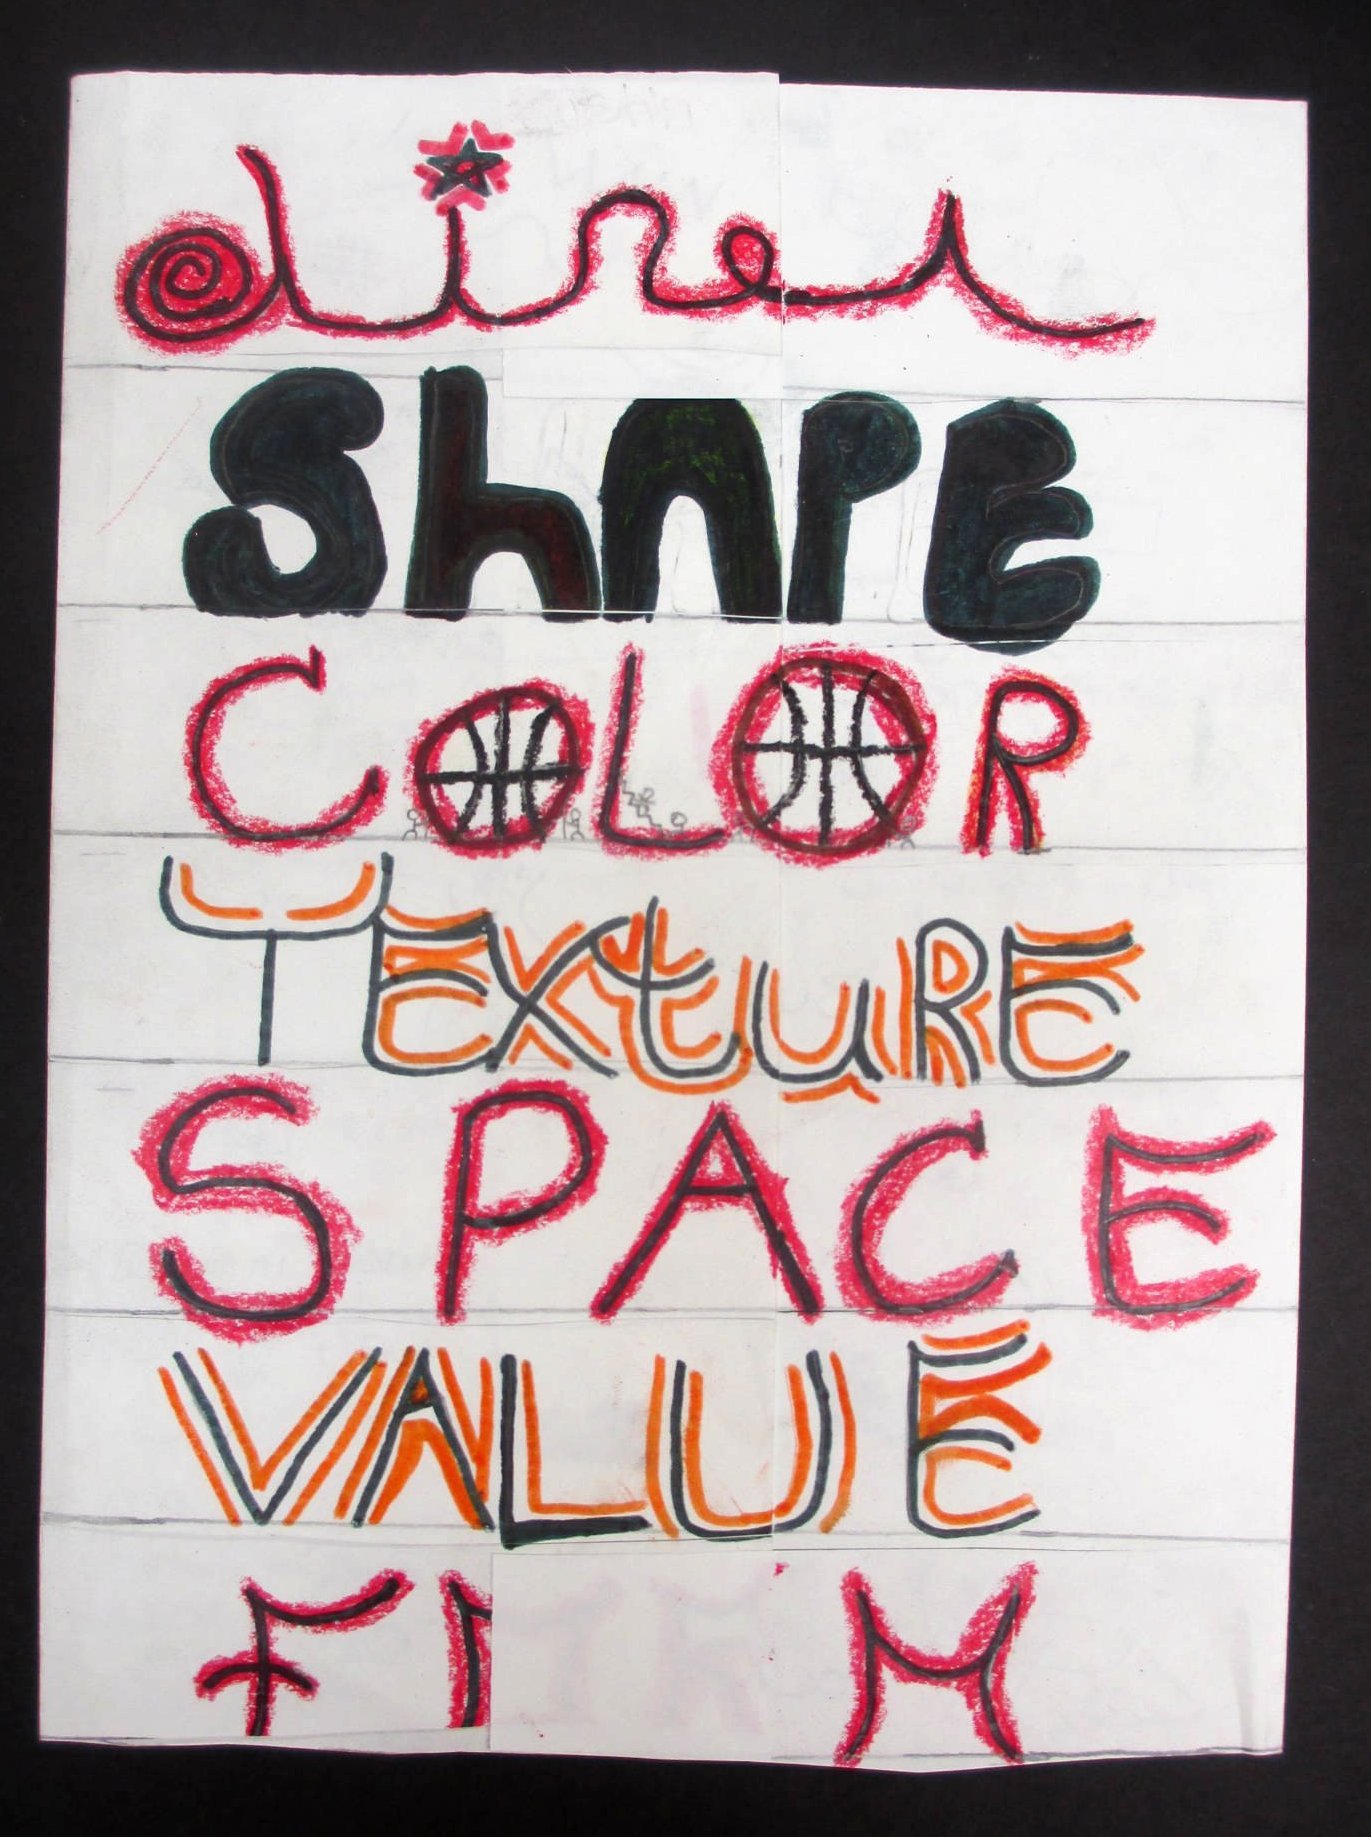 lines
ShAPE
COLOR
TEXtuRE
SPACE
VALUE
F M